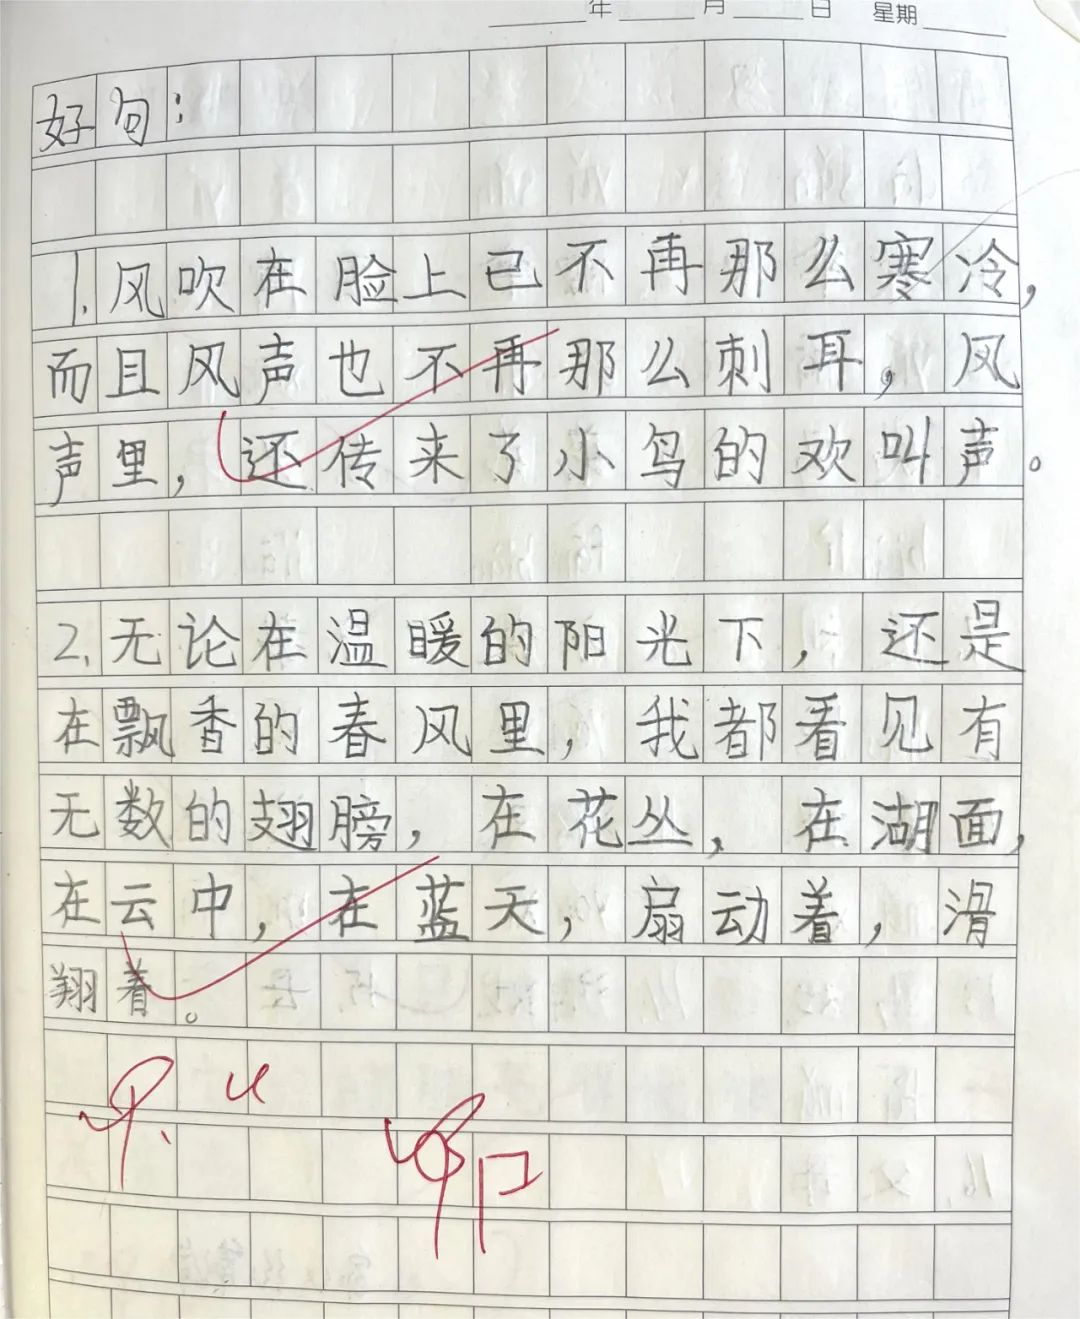 年 月 日 星期
好句：
1.风吹在脸上已不再那么寒冷，
而且风声也不再那么刺耳，风
声里，还传来了小鸟的欢叫声。
2.无论在温暖的阳光下，还是
在飘香的春风里，我都看见有
无数的翅膀，在花丛，在湖面，
在云中，在蓝天，扇动着，滑
翔着。